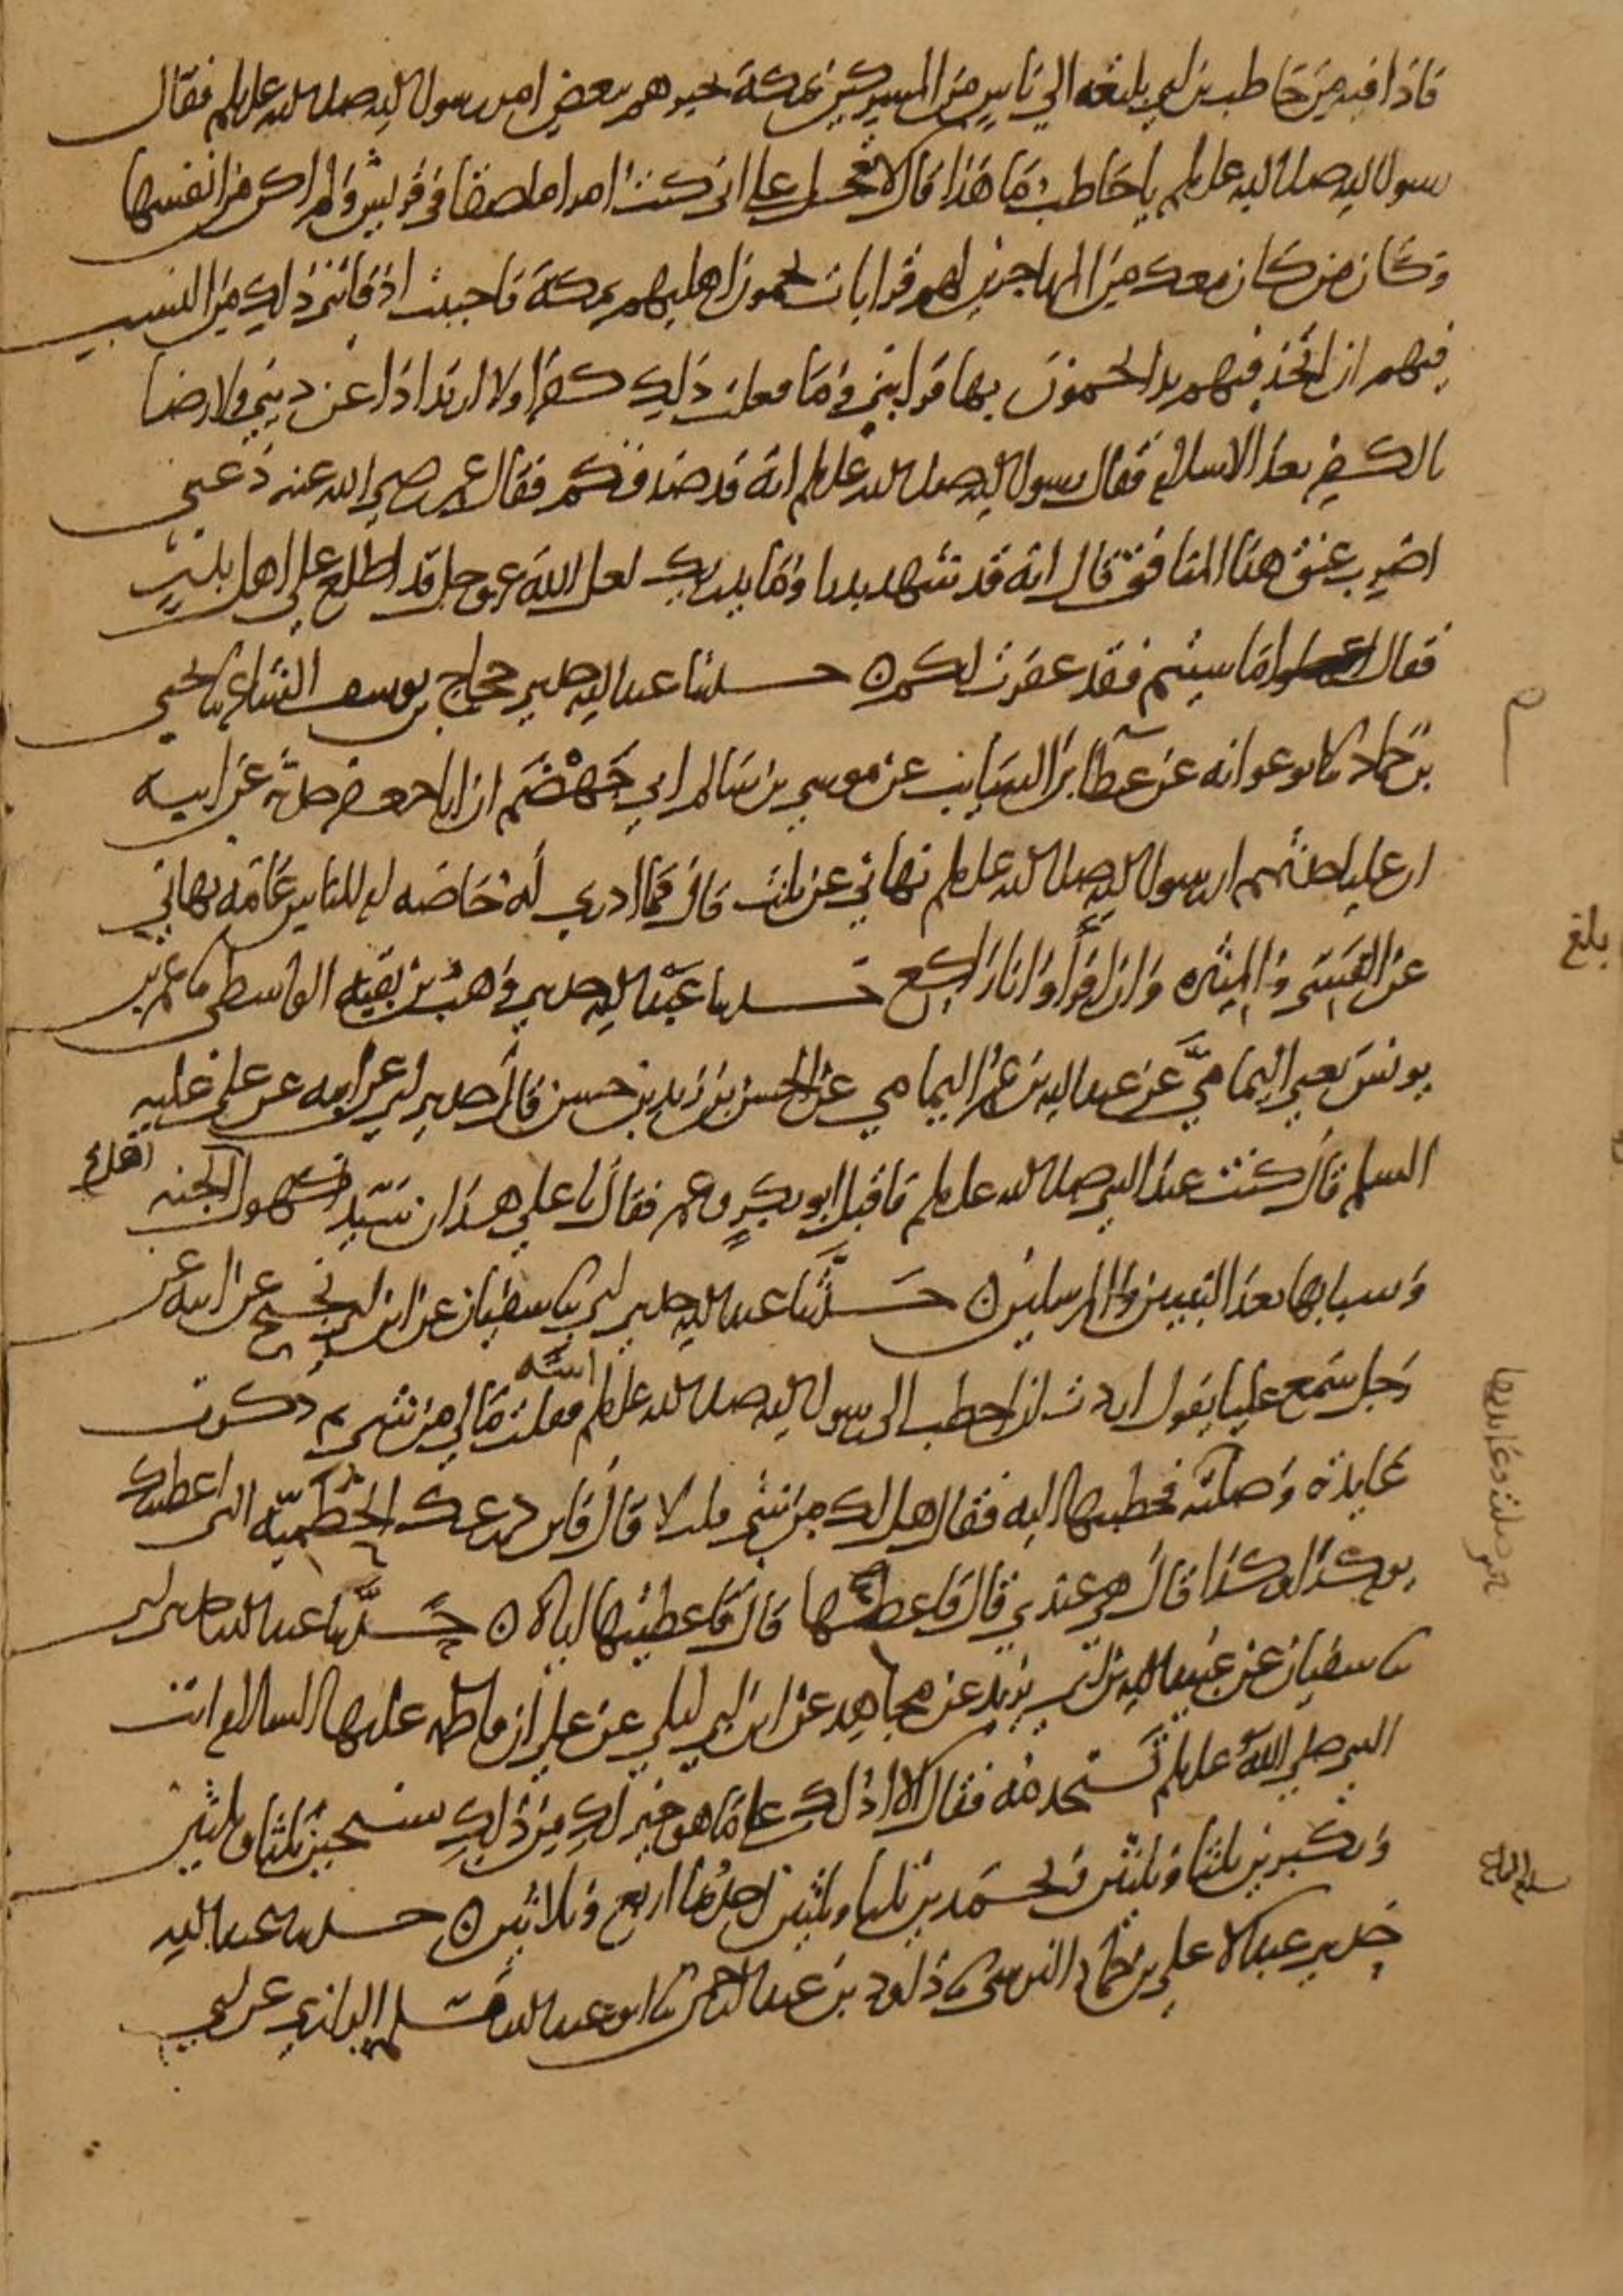 فاذا فيه من حاطب بن ابي بلتعه الي ناس من المشركين بمكة يخبرهم ببعض امر رسول الله صلى الله عليه وسلم فقال
رسول الله صلى الله عليه وسلم يا حاطب ما هذا قال لا تعجل علي اني كنت امرا ملصقا في قريش ولم اكن من انفسها
وكان من كان معك من المهاجرين لهم قرابات يحمون اهليهم بمكة فاحببت اذ فاتني ذلك من النسب
فيهم ان اتخذ فيهم يدا يحمون بها قرابتي وما فعلت ذلك كفرا ولا ارتدادا عن ديني ولا رضا
بالكفر بعد الاسلام فقال رسول الله صلى الله عليه وسلم انه قد صدقكم فقال عمر رضي الله عنه دعني
اضرب عنق هذا المنافق قال انه قد شهد بدرا وما يدريك لعل الله عز وجل قد اطلع على اهل بدر
فقال اعملوا ما شيتم فقد غفرت لكم ن حدثنا عبد الله حدثني حجاج بن يوسف الشاعر ثنا يحيى
بن حماد ثنا ابو عوانه عن عطا بن السايب عن موسي بن سالم ابي جهضم ان ابا جعفر حدثه عن ابيه
ان عليا حدثهم ان رسول الله صلى الله عليه وسلم نهاني عن ثلثة قال فما ادري له خاصه ام للناس عامه نهاني
عن القسي والميثره وان اقرأ وانا راكع حدثنا عبد الله حدثني وهب بن بقيه الواسطي ثنا عمر بن
يونس يعني اليمامي عن عبد الله بن عمر اليمامي عن الحسن بن زيد بن حسن قال حدثني ابي عن ابيه عن علي عليه
السلم قال كنت عند النبي صلى الله عليه وسلم فاقبل ابو بكر وعمر فقال يا علي هذان سيدا كهول اهل الجنه
وشبابها بعد النبيين والمرسلين ن حدثنا عبد الله حدثني ابي ثنا سفيان عن ابن ابي نجيح عن ابيه عن
رجل سمع عليا يقول اردت ان اخطب الى رسول الله صلى الله عليه وسلم ابنته فقلت ما لي من شي ثم ذكرت
عايدته وصلته فخطبتها اليه فقال هل لك من شي قلت لا قال فاين درعك الحطميه التي اعطيتك
يوم كذا وكذا قال هي عندي قال فاعطها قال فاعطيتها اياه ن حدثنا عبد الله حدثني ابي
ثنا سفيان عن عبيد الله بن ابي يزيد عن مجاهد عن ابن ابي ليلي عن علي ان فاطمه عليها السلام اتت
النبي صلى الله عليه وسلم تستخدمه فقال الا ادلك على ما هو خير لك من ذلك تسبحين ثلثا وثلثين
وتكبرين ثلثا وثلثين وتحمدين ثلثا وثلثين احدها اربع وثلاثين ن حدثنا عبد الله
حدثني عبد الاعلي بن حماد النرسي ثنا داود بن عبد الرحمن ثنا ابو عبد الله مسلمه الرازي عن ابي
بلغ